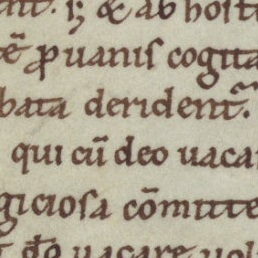 ⁊ ab host
p̄ uanis cogita
bata derident᷑.
qui cū deo uaca
giciosa cōmitte
uacare uol